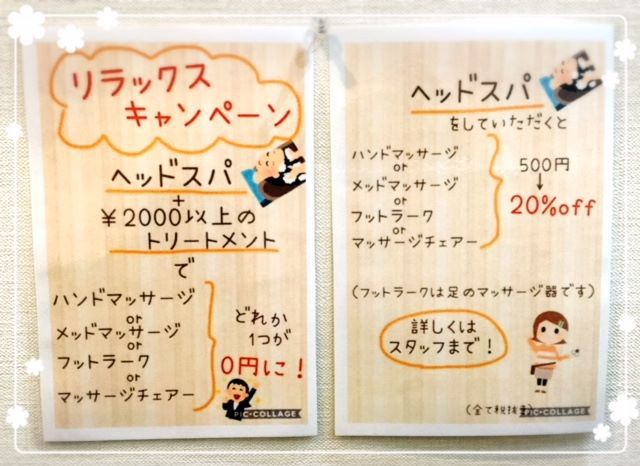 リラックス
キャンペーン
ヘッドスパ
+
¥2000以上の
トリートメント
で
ハンドマッサージ
or
メッドマッサージ
or
フットラーク
or
マッサージチェアー
どれか
1つが
0円に!
PIC•COLLAGE
ヘッドスパ
をしていただくと
ハンドマッサージ
or
メッドマッサージ
or
フットラーク
or
マッサージチェアー
500円
↓
20%off
(フットラークは足のマッサージ器です)
詳しくは
スタッフまで!
(全て税抜き)
PIC•COLLAGE